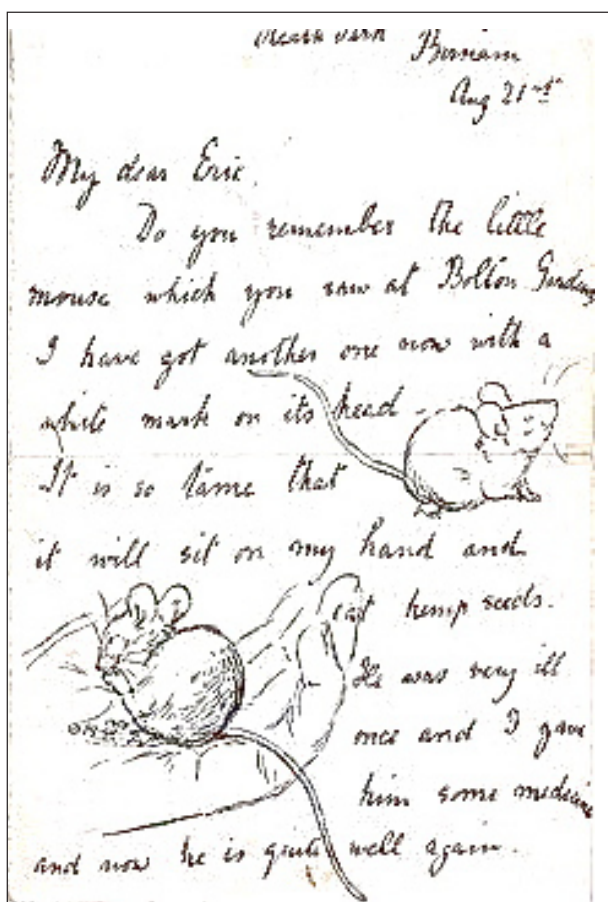 Aug 21st
My dear Eric,
Do you remember the little
mouse which you saw at Bolton Gardens
I have got another one now with a
white mark on its head.
It is so tame that
it will sit on my hand and
eat hemp seeds.
He was very ill
once and I gave
him some medicine
and now he is quite well again.